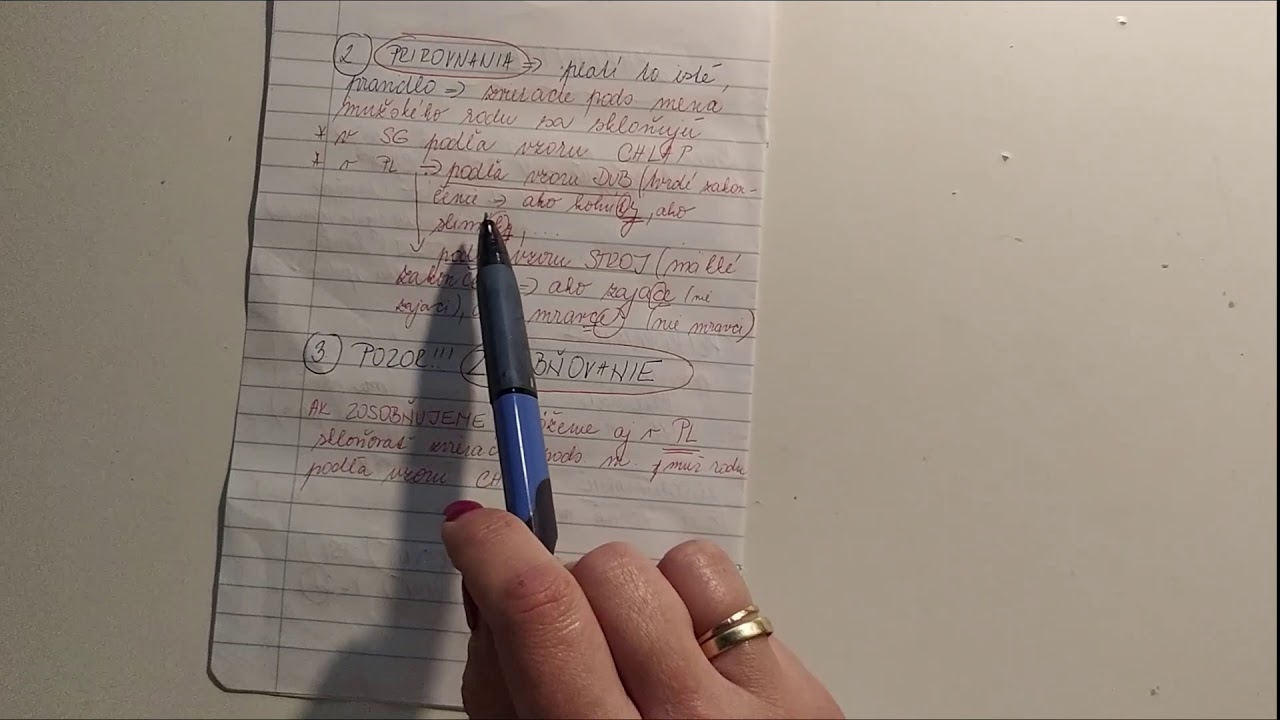 2 PRIROVNANIA => platí to isté,
pravidlo => zvieracie pods mena
mužského rodu sa skloňujú
* v SG podľa vzoru CHLAP
* v PL => podľa vzoru DUB (tvrdé zakon-
čenie => ako kohúty, ako
podľa vzoru STROJ (mäkké
=> ako zajace (nie
zajaci), mravce (nie mravci)
3 POZOR!!!
AK ZOSOBŇUJEME môžeme aj v PL
skloňovať pods m. muž rodu
podľa vzoru